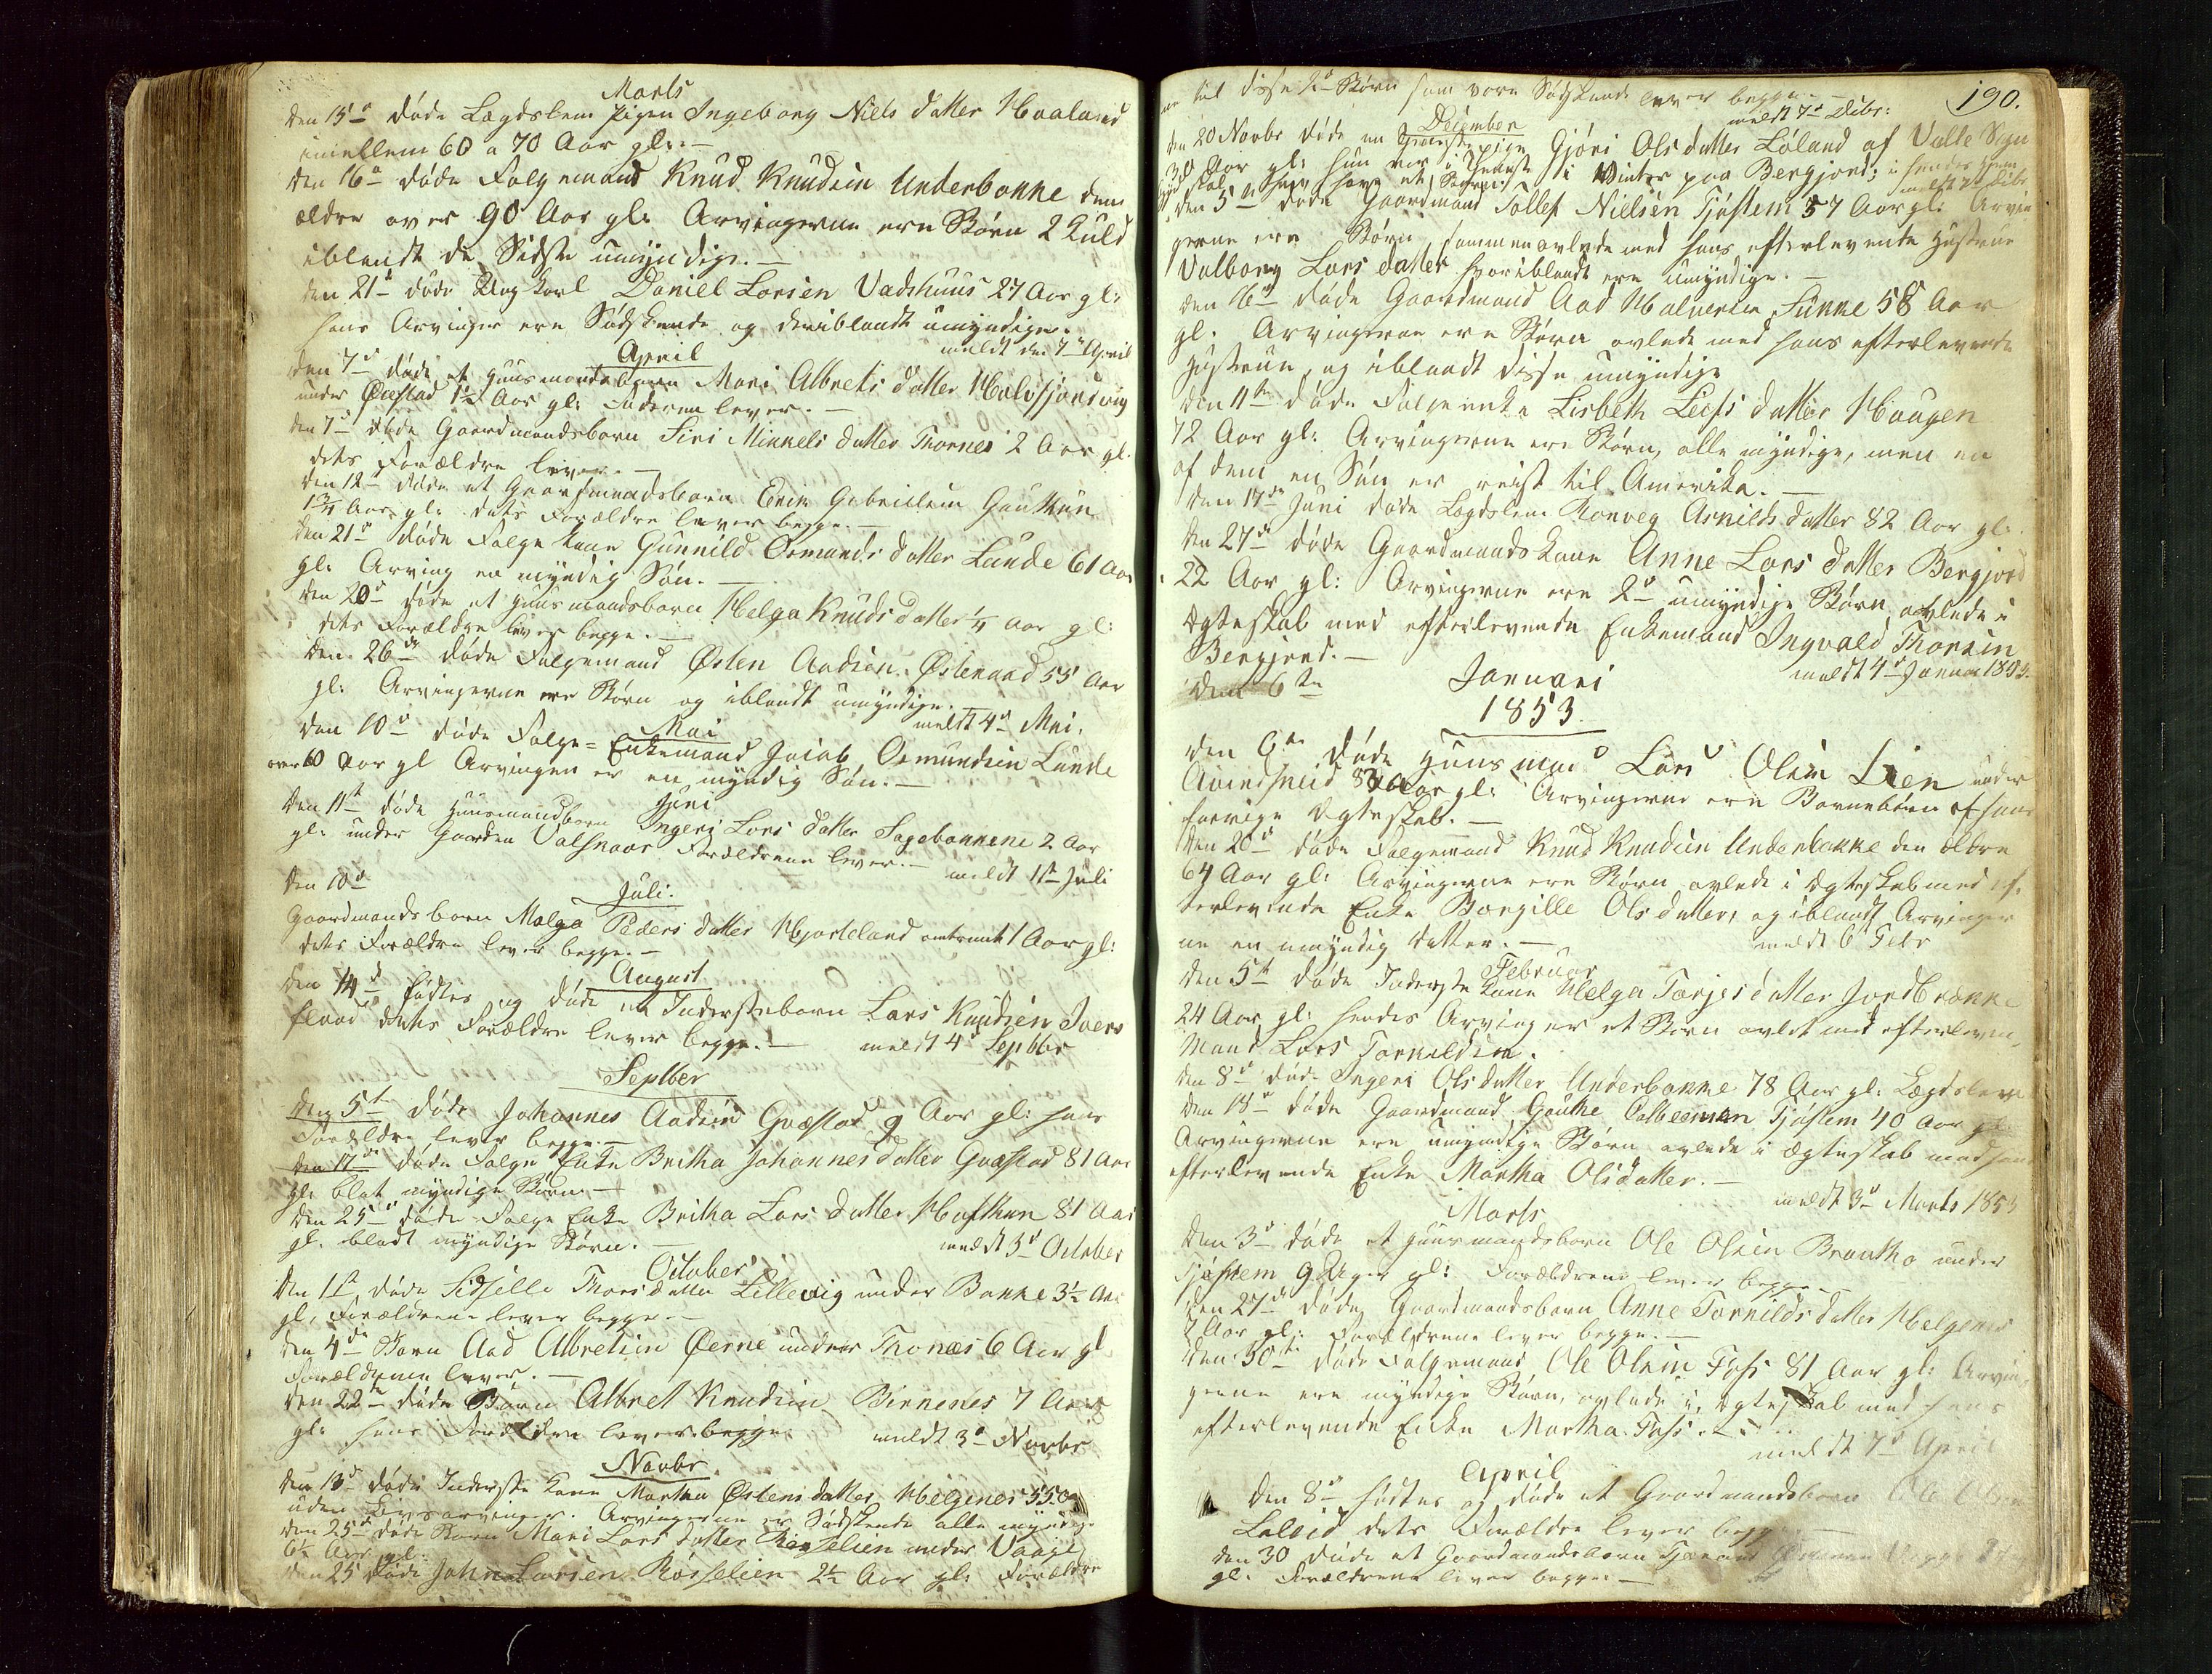 Marts
den 15de døde Lægdslem Pigen Ingeborg Niels datter Haaland
imellem 60 a 70 Aar gl: —
den 16de døde Folgemand Knud Knudsen Underbakke den
ældre over 90 Aar gl: Arvingerne ere Børn 2 Kuld
iblandt de Sidste umyndige. —
den 21de døde Ungkarl Daniel Larsen Vadshuus 27 Aar gl:
hans Arvinger ere Sødskende og deriblandt umyndige.
meldt den 7de April
April
den 7de døde et Huusmandsbarn Mari Albrets datter
under 1½ Aar gl: Faderen lever. —
den 7de døde Gaardmandsbarn Siri Mikkels datter Thornes 2 Aar gl.
dets Forældre lever. —
den 12te døde et Gaardmandsbarn Erik Gabrielsen Gautun
1¾ Aar gl: dets Forældre lever begge. —
den 21de døde Folgekone Gunnild Osmunds datter Lunde 61 Aar
gl: Arving en myndig Søn. —
den 20de døde et Huusmandsbarn Helga Knuds datter ¼ aar gl:
dets Forældre lever begge. —
den 26de døde Folgemand Østen Aadsen 55 Aar
gl: Arvingerne ere Børn og iblandt umyndige. —
meldt 4de Mai.
Mai
den 10de døde Folge= Enkemand Jacob Osmundsen Lunde
over 60 Aar gl Arvingen er en myndig Søn. —
Juni
den 11te døde Huusmandbarn Ingeri Lars datter Sagebakkene 2 Aar
gl: under Gaarden Valsnaar Forældrene lever. —
meldt 1ste Juli
den 10de
Juli.
Gaardmandsbarn Malga Peders datter Hjorteland omtrent 1 Aar gl:
dets Forældre lever begge. —
August
den 14de fødtes og døde et Inderstebarn Lars Knudsen
dets Forældre lever begge. — meldt 4de Septbr
Septber
den 5te døde Johannes Aadsen Qvæstad 9 Aar gl: hans
Forældre lever begge. —
den 17de døde Folge Enke Britha Johannes datter Qvæstad 81 Aar
gl: blot myndige Børn. —
den 25de døde Folge Enke Britha Lars datter Hafthun 81 Aar
gl. blodt myndige Børn. — meldt 3de October
October
den 1ste døde Sidselle Thors datter Lillevig under Bakke 3½ Aar
gl, Forældrene lever begge. —
den 4de Barn Aad Albretsen Øerne under Thornæs 6 Aar gl
Forældrene lever. —
den 22de døde Barn Albret Knudsen Birkenes 7 Aar
gl: hans Forældre lever begge meldt 3de Novbr
Novbr.
den 13de døde Inderste Kone Martha Østens datter Helgenes 55
uden Livsarvinger. Arvingerne er Sødskende alle myndige
den 25de døde Barn Mari Lars datter Røsselien under Vaage
6½ Aar gl:
den 25 døde John Larsen Røsselien 2½ Aar gl: Forældre
190.
til disse 2de Børn som vare Sødskende lever begge. —
meldt 7de Dcbr:
December
den 20 Novbr døde en Gjøri Ols datter Løland af Valle Sogn
30 Aar gl: hun var i Tjeneste i Vinter paa Bergjord;
den 5te døde Gaardmand Tollef Nielsen Tjøstem 57 Aar gl: Arvin
gerne ere Børn sammenavlede med hans efterlevende Hustrue
Valborg Lars datter hvoriblandt ere umyndige. —
den 16de døde Gaardmand Aad Halvorsen Sunne 58 Aar
gl; Arvingerne ere Børn avlede med hans efterlevende
Hustrue, og iblandt disse umyndige
den 11te døde Folgeenke Lisbeth Leefs datter Haugen
72 Aar gl: Arvingerne ere Børn, alle myndige, men en
af dem en Søn er reist til Amerika. —
den 17de Juni døde Lægdslem Ronveg Askilds datter 82 Aar gl:
den 27de døde Gaardmandskone Anne Lars datter Bergjord
22 Aar gl: Arvingerne ere 2de umyndige Børn avlede i
Ægteskab med efterlevende Enkemand Ingvald Thorsen
Bergjord. — meldt 4de Januar 1853.
den 6te
Januari
1853.
den 6te døde Huusmand Lars Olsen Lien under
83 Aar gl: Arvingerne ere Barnebørn af hans
forrige Ægteskab. —
den 20de døde Folgemand Knud Knudsen Underbakke den ældre
64 Aar gl: Arvingerne ere Børn avlede i Ægteskab med ef-
terlevende Enke Borgille Ols datter, og iblandt Arvinger
ne en umyndig datter. — meldt 6te Febr
Februar
den 5te døde Inderste Kone Helga Tarjes datter Jordbrække
24 Aar gl: hendes Arving er et Barn avlet med efterleven-
Mand Lars Tarkildsen.
den 8de døde Ingeri Ols datter Underbakke 78 Aar gl: Lægdslem
den 18de døde Gaardmand Gautke Tjøstem 40 Aar gl:
Arvingerne ere umyndige Børn avlede i Ægteskab med hans
efterlevende Enke Martha Olsdatter. —
meldt 3de Marts 1853
Marts
den 3de døde et Huusmandsbarn Ole Olsen Brautho under
Tjøstem 9 Uger gl: Forældrene lever begge. —
den 27de døde Gaardmandsbarn Anne Tarkilds datter Helgenes
2 Aar gl: Forældrene lever begge. —
den 30te døde Folgemand Ole Olsen Foss 81 Aar gl: Arvin-
gerne ere myndige Børn, avlede i Ægteskab med hans
efterlevende Enke Martha Foss. —
meldt 7de April
April
den 8de fødtes og døde et Gaardmandsbarn Ole
dets Forældre lever begge —
den 30 døde et Gaardmandsbarn
gl. Forældrene lever begge. —